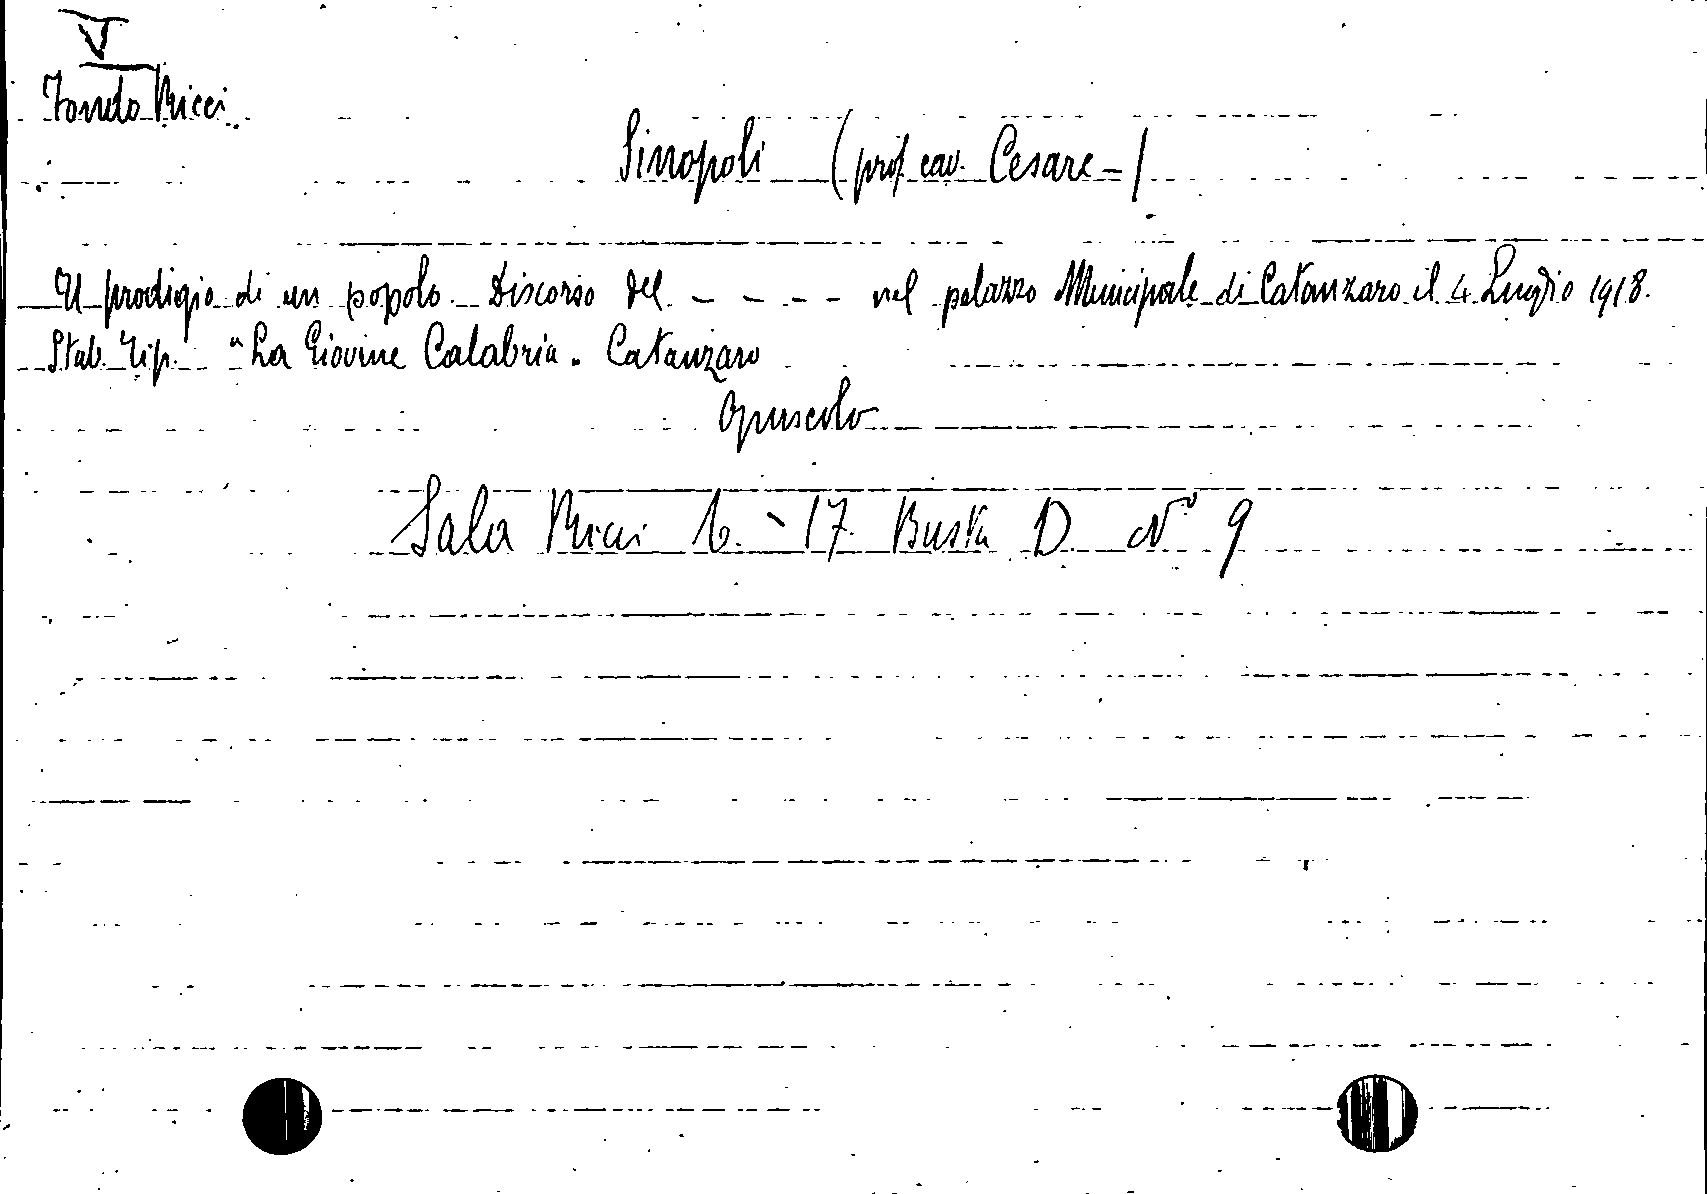 V
Fondo Ricci
Sinopoli (prof. cav. Cesare -)
Il prodigio di un popolo. Discorso del - - - - - nel palazzo Municipale di Catanzaro il 4 Luglio 1918.
Stab. Tip. "La Giovine Calabria. Catanzaro
Opuscolo
Sala Ricci 6. - 17. Busta D. N° 9